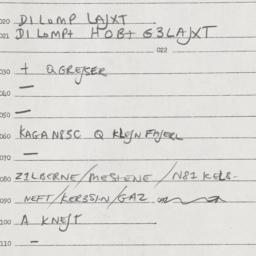 020 DILOMP LAJXT
021 DILOMP+ HOB+ G3LAJXT
022
030 + QGREJSER
040 —
050 —
060 KAGANBSC Q KLEJN FAJERL
070 —
080 ZILBERNE/MESHENE/N81KELB-
090 NEFT/KERBSIN/GAZ
100 A KNEJT
110 —